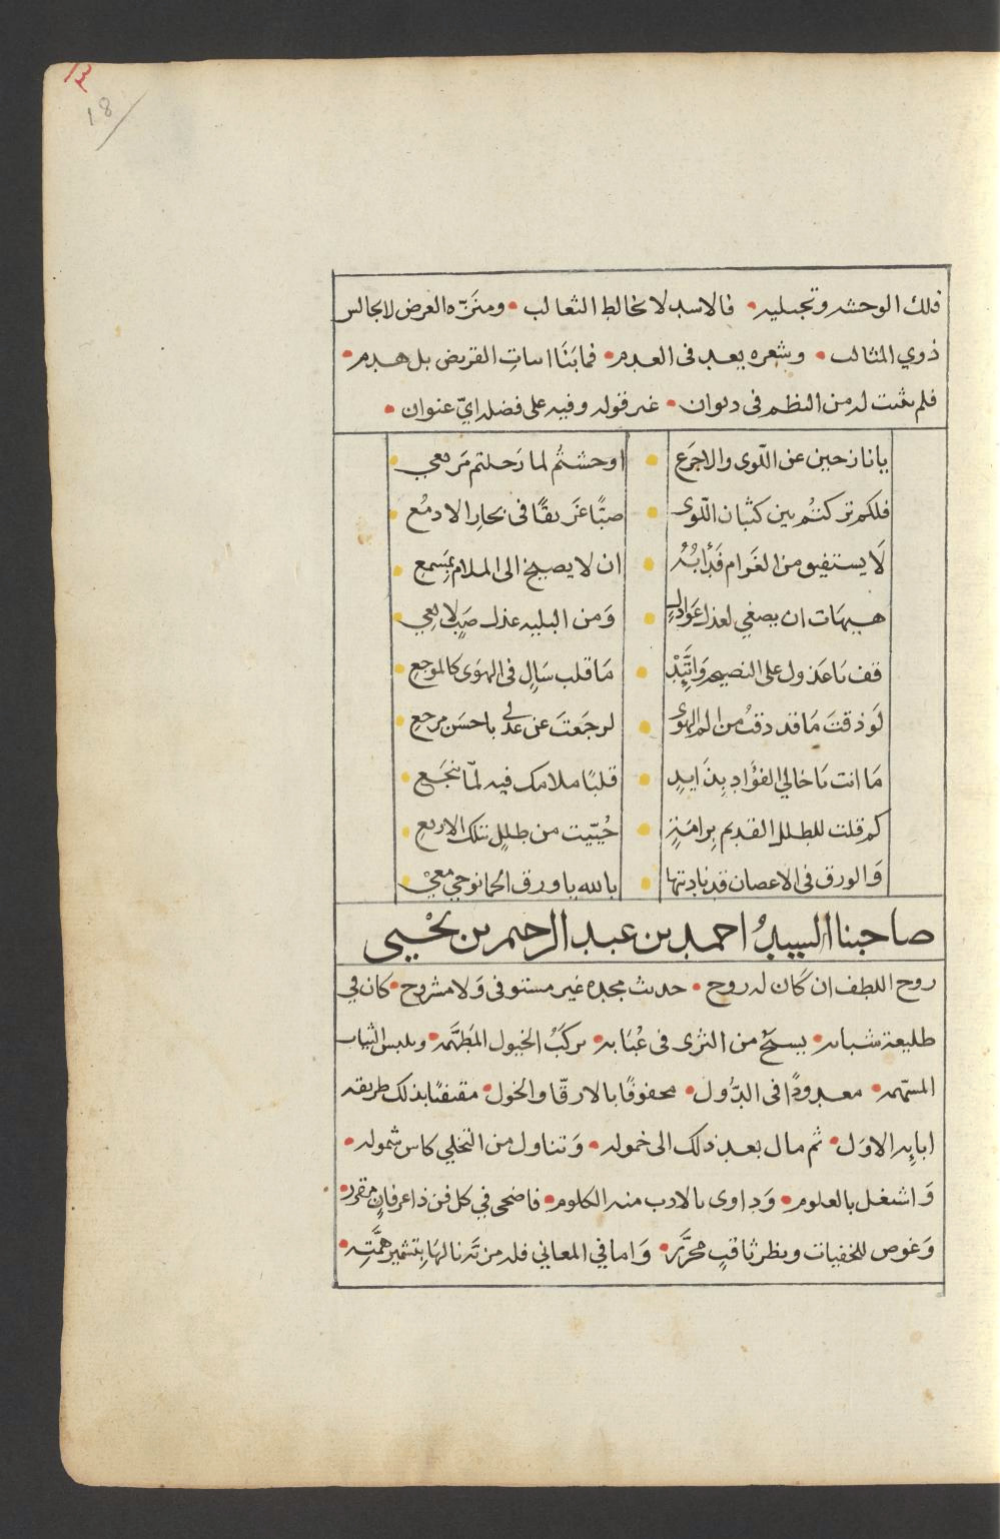 ١٣
18
فلك الوحشه وتجبليه • فالاسد لا تخالط الثعالب • ومنزّه العرض لا يجالس
ذوي المثالب • وشعره يعد فى العدم • فما بَنَا ابيات القريض بل هدم •
فلم يثبت له من النظم فى ديوان • غير قوله وفيه على فضله ايّ عنوان •
يا نازحين عن اللّوى والاجرَع • اوحشتُم لما رَحلتم مَربعي •
فلكم تركتُم بين كثبان اللّوى • صبًّا غَريقًا فى بحار الادمُع •
لَا يستفيق من الغَرام فَدَأبُهُ • ان لا يصيخ الى الملام بمَسمع •
هيهَات ان يصغي لعذل عَوَاذلٍ • وَمن البليه عذل صَبٍّ لا يعي •
قف يَا عَذول على النصيحه وَاتَّئِدْ • مَا قلب سَالٍ فى الهَوى كالموجع •
لَو ذقتَ مَا قد ذقتُ من الم الهوى • لرجَعتَ عن عذلى باحسَن مرجع •
مَا انت يَا خالي الفؤاد بِذَايدٍ • قلبًا ملامك فيه لمّا ينجَع •
كم قلت للطلل القديم برامَةٍ • حُيّيت من طللٍ بتلك الاربع •
وَالورق فى الاغصان قد ناديتها • بالله يا ورق الحما نوحي معيْ •
صاحبنا السيدُ احمد بن عبد الرحيم بن يحْيى
روح اللطف ان كَان له روح • حدث بمجده غير مستوفى وَلا مشروح • كان في
طليعة شبابه • يسبَح من الثرى فى عُبَابه • يركبُ الخيول المَطَهَّمه • ويلبس الثياب
المسهّمه • معدودًا فى الدُّول • محفوفًا بالارقّا والخول • مقتفيًا بذلك طريقه
ابايِه الاوَل • ثم مال بعد ذلك الى خموله • وَتناول من التخلي كاس شموله •
وَاشتغل بالعلوم • وَداوى بالادب منه الكلوم • فاضحى في كل فن ذا عرفانٍ مقرر •
وَغوص للخفيات ونظر ثاقبٍ محرَّر • وَاما في المعاني فله من تَرنا لهَا بتشمير همَّتِه •